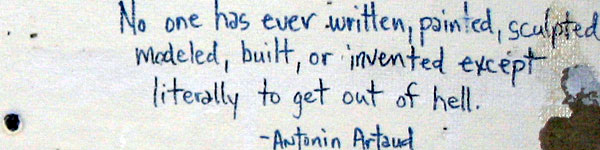 No one has ever written, painted, sculpted
modeled, built, or invented except
literally to get out of hell.
-Antonin Artaud